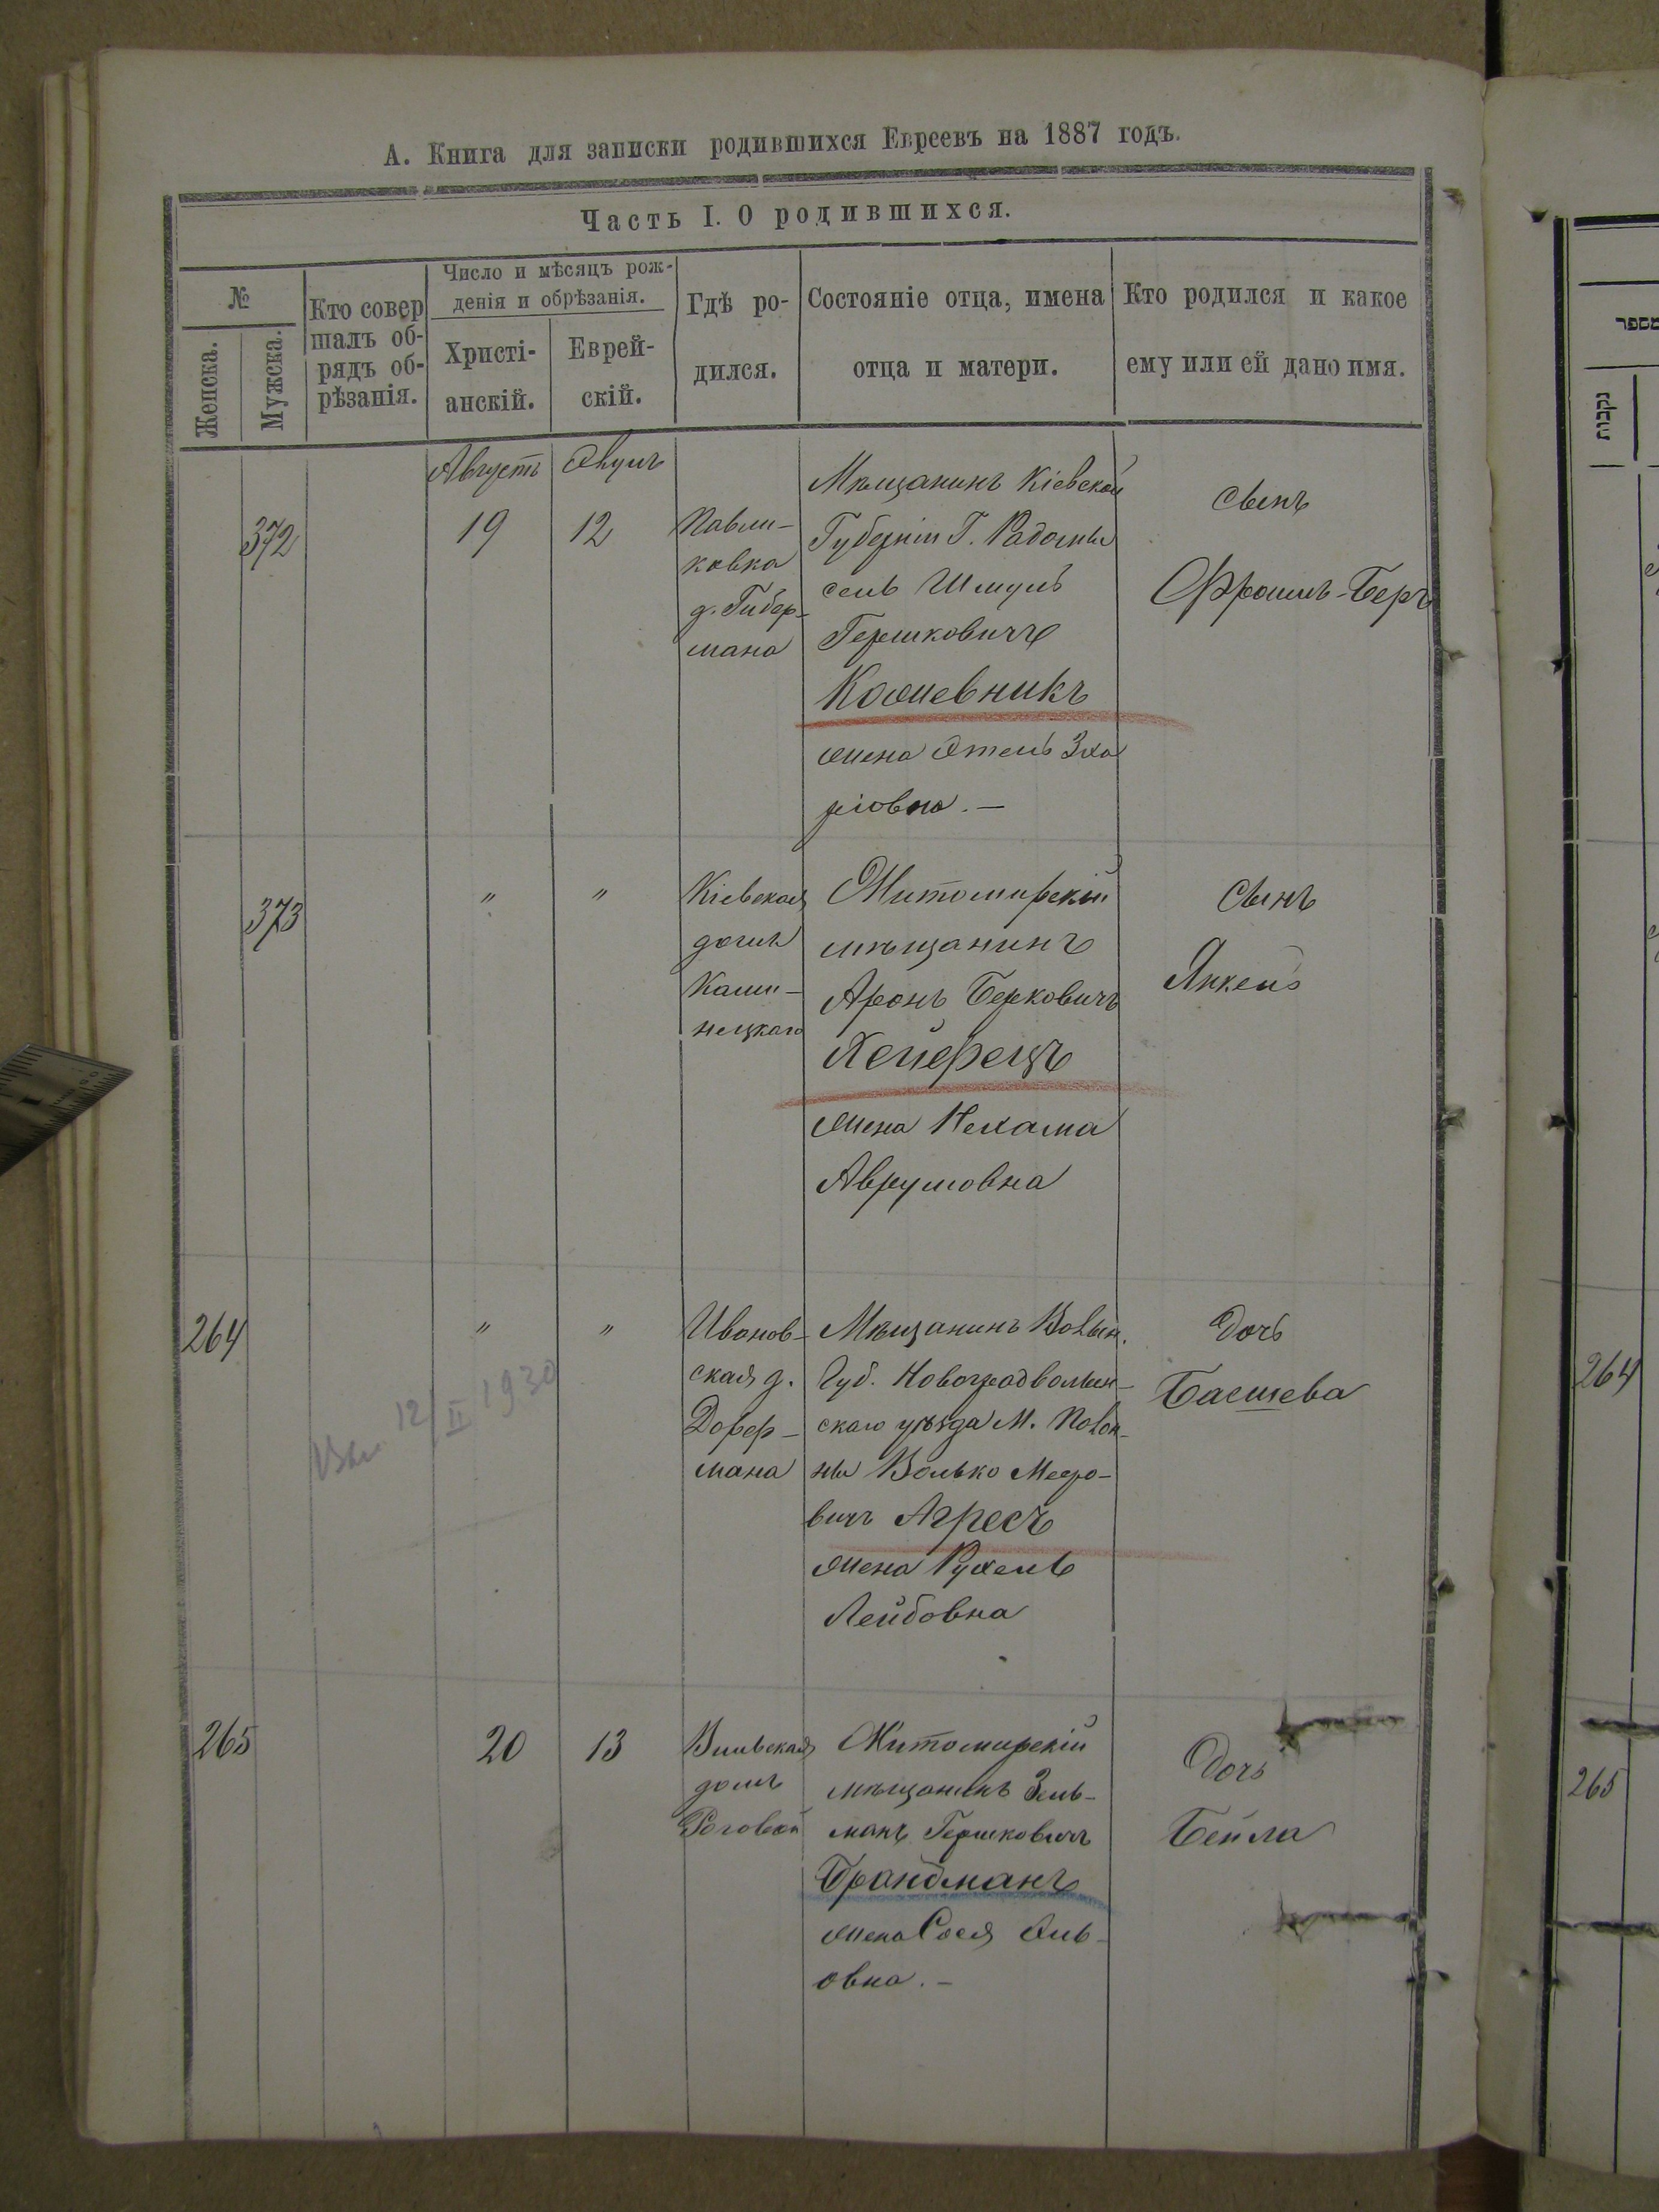 А. Книга для записки родившихся Евреевъ на 1887 годъ.
Часть I. О родившихся.
№
Женска.
Мужска.
Кто совер
шалъ об-
рядъ об-
рѣзанія.
Число и мѣсяцъ рож-
денія и обрѣзанія.
Христі-
анскій.
Еврей-
скій.
Гдѣ ро-
дился.
Состояніе отца, имена
отца и матери.
Кто родился и какое
ему или ей дано имя.
Августъ
372
19
12
Павли-
ковка
д. Гибер-
мана
Мѣщанинъ Кіевской
Губерніи Г. Радомы
сель Шмуль
Гершковичъ
Кожевникъ
жена Этель Зха
ріовна. —
сынъ
Фроимъ-Беръ
373
"
"
Кіевская
домъ
Ками-
нецкаго
Житомирскій
мѣщанинъ
Аронъ Берковичъ
Хейфецъ
жена Нехама
Аврумовна
Сынъ
Янкель
264
"
"
Иванов-
ская д.
Дорфер-
мана
Мѣщанинъ Волын.
Губ. Новоградволын-
скаго уѣзда М. Полон-
ны Волько Меэро-
вичъ Агресъ
жена Рухель
Лейбовна
Дочь
Басшева
12/II 1930
265
20
13
Вильская
домъ
Роговой
Житомирскій
мѣщанинъ Зель-
манъ Гершковичъ
Брандманъ
жена Сося
овна. —
Дочь
Бейла
מספר
נקבות
264
265